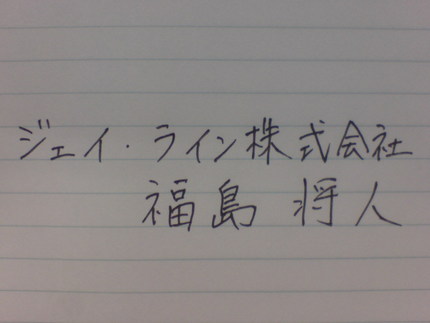 ジェイ・ライン株式会社
福島 将人